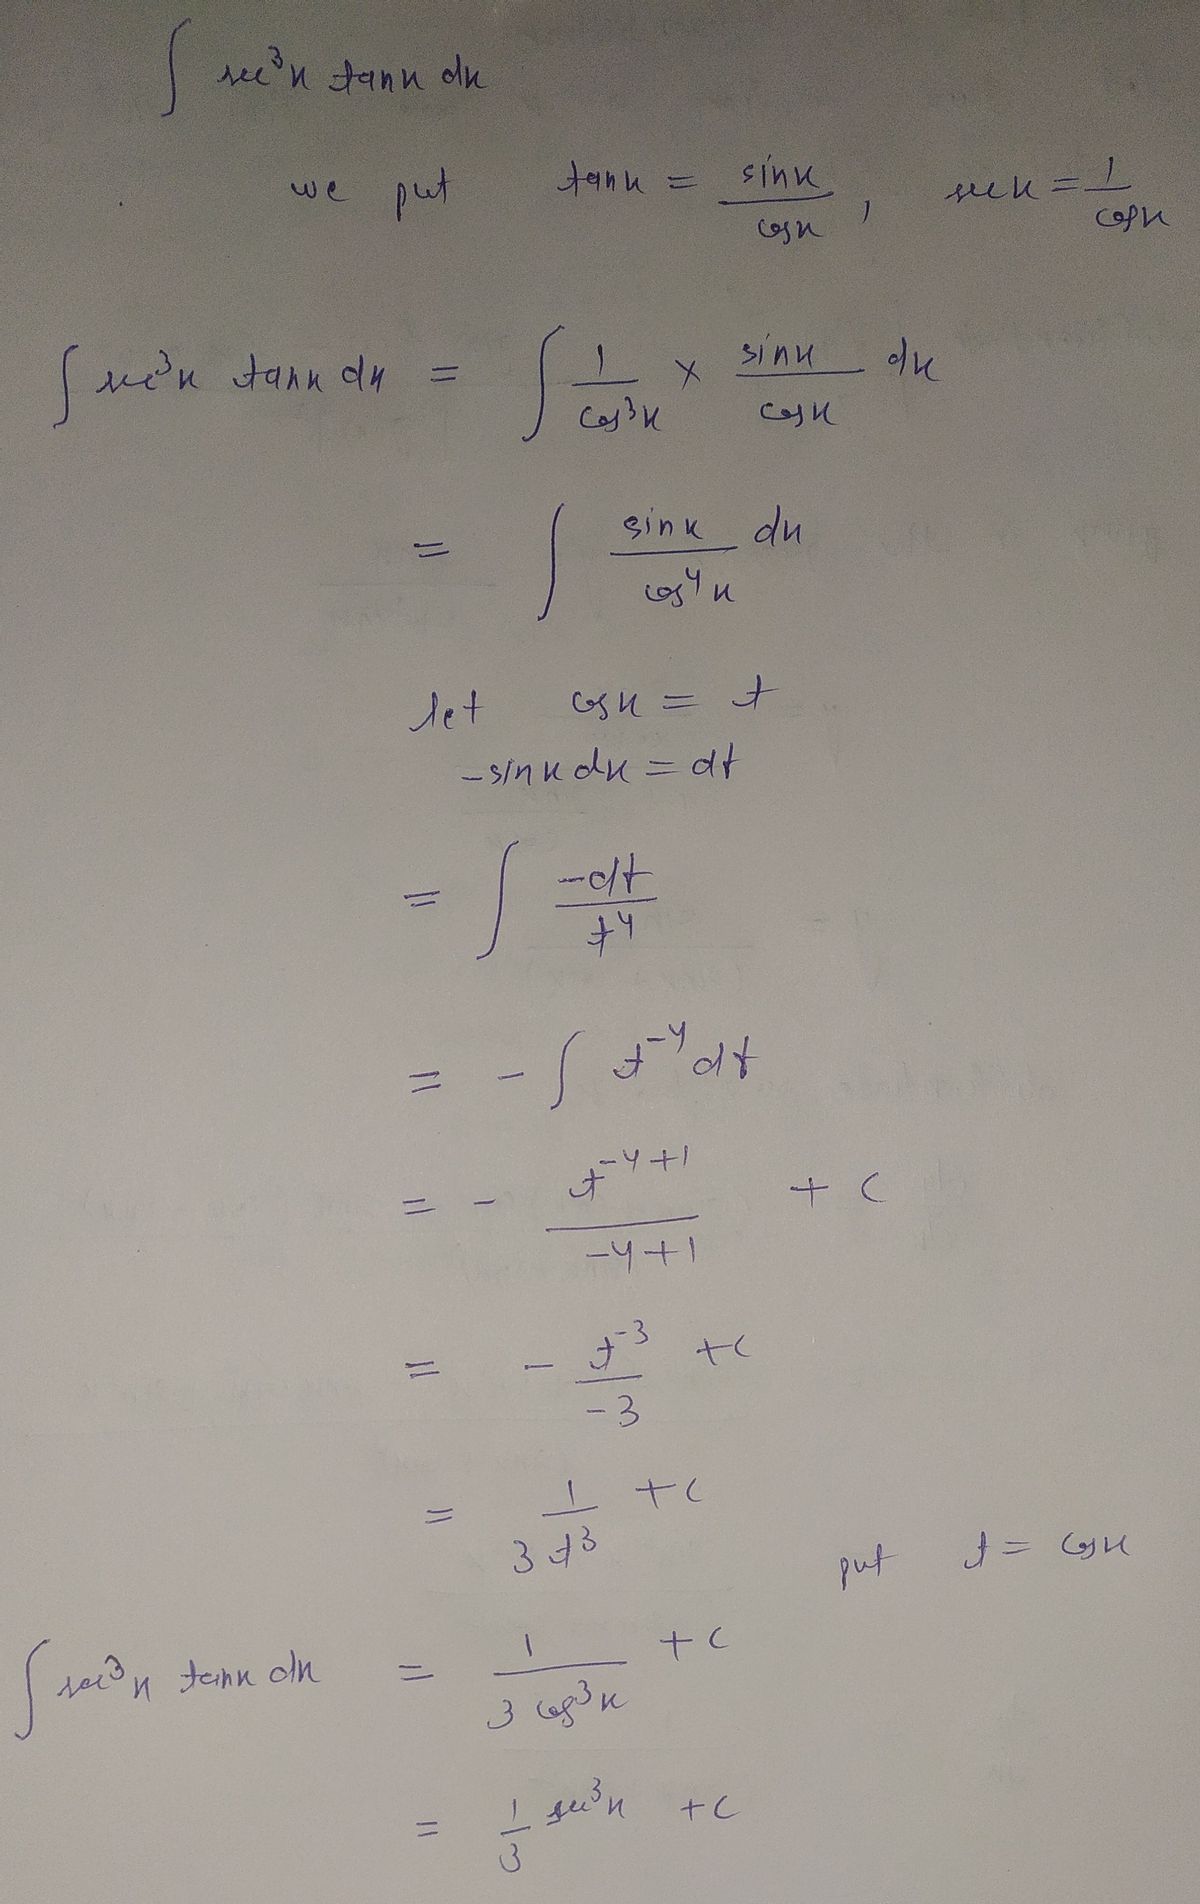 ∫ sec³x tanx dx
we put tanx = sinx/cosx, secx = 1/cosx
∫ sec³x tanx dx = ∫ 1/cos³x × sinx/cosx dx
= ∫ sinx/cos⁴x dx
let cosx = t
-sinx dx = dt
= ∫ -dt/t⁴
= - ∫ t⁻⁴ dt
= - t⁻⁴⁺¹/-4+1 + c
= - t⁻³/-3 + c
= 1/3t³ + c
put t = cosx
∫ sec³x tanx dx = 1/3cos³x + c
= 1/3 sec³x + c